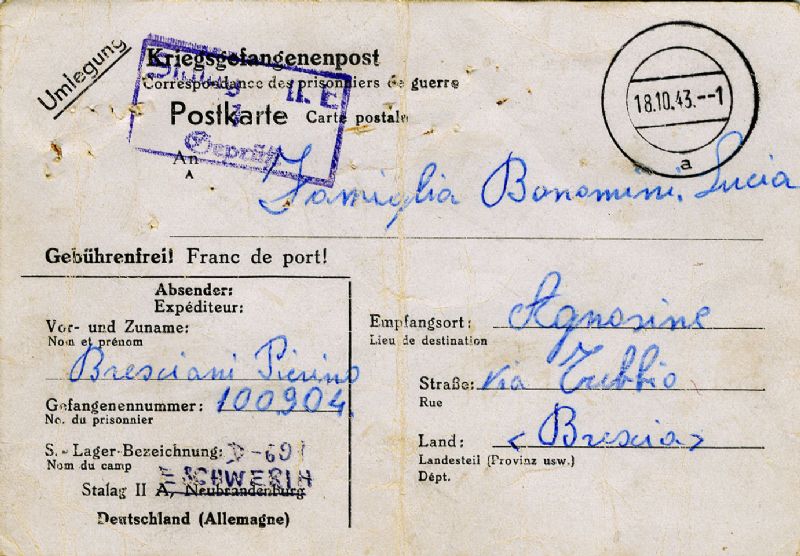 Umlegung
Kriegsgefangenenpost
Correspondance des prisonniers de guerre
Stalag II E
Postkarte Carte postale
Geprüft
18.10.43.--1
a
An
A
Famiglia Bonomini Lucia
Gebührenfrei! Franc de port!
Absender:
Expéditeur:
Vor- und Zuname:
Nom et prénom
Bresciani Pierino
Gefangenennummer: 100904.
No. du prisonnier
S.- Lager-Bezeichnung: D-691
Nom du camp
E SCHWERIN
Stalag II A, Neubrandenburg
Deutschland (Allemagne)
Empfangsort: Agnosine
Lieu de destination
Straße: via Trebbio
Rue
Land: <Brescia>
Landesteil (Provinz usw.)
Dépt.